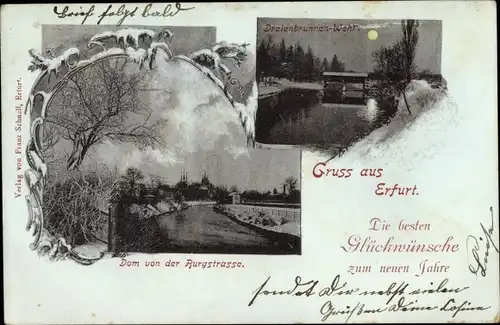 Brief folgt bald
Dreienbrunnen-Wehr.
Verlag von Franz Schnall, Erfurt.
Gruss aus
Erfurt.
Dom von der Burgstrasse.
Die besten
Glückwünsche
zum neuen Jahre
sendet Dir nebst vielen
Grüßen Deine